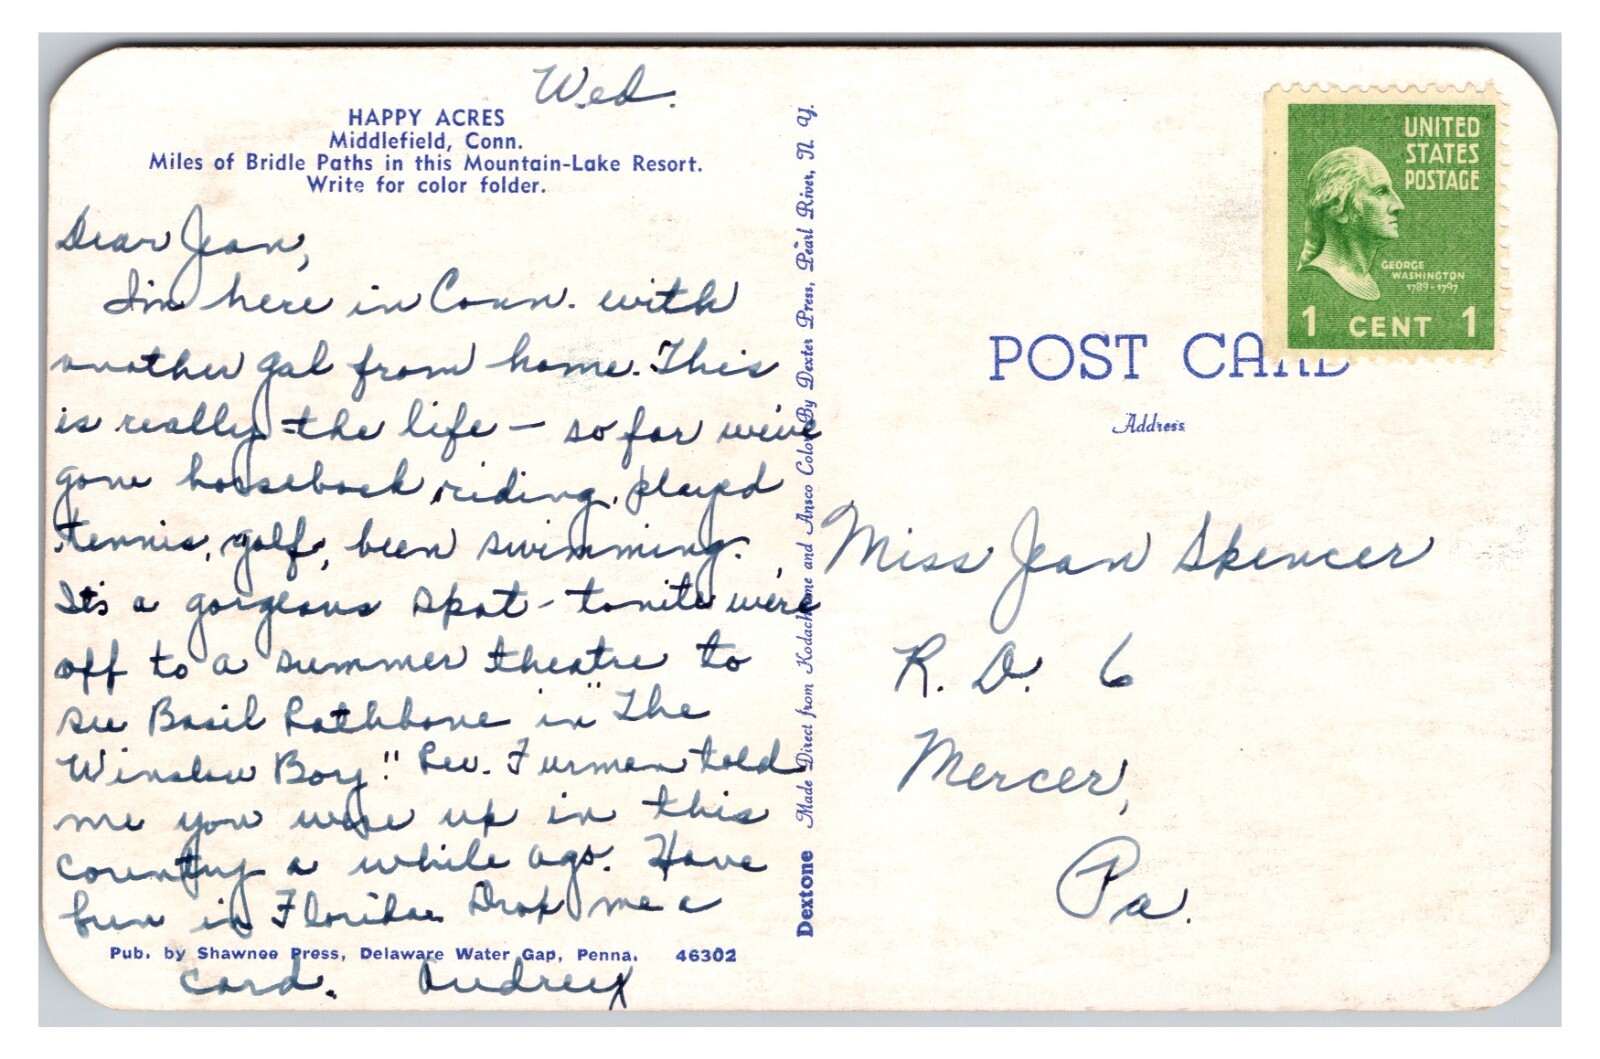 Wed.
HAPPY ACRES
Middlefield, Conn.
Miles of Bridle Paths in this Mountain-Lake Resort.
Write for color folder.
Dear Jean,
I'm here in Conn. with
another gal from home. This
is really the life - so far we've
gone horseback riding, played
tennis, golf, been swimming.
It's a gorgeous spot - tonite we're
off to a summer theatre to
see Basil Rathbone in "The
Winslow Boy" Rev. Furman told
me you were up in this
country a while ago. Have
been in Florida. Drop me a
Pub. by Shawnee Press, Delaware Water Gap, Penna. 46302
card. Audrey
Dextone Made Direct from Kodachrome and Ansco Color By Dexter Press, Pearl River, N. Y.
UNITED
STATES
POSTAGE
GEORGE
WASHINGTON
1789-1797
1 CENT 1
POST CARD
Address
Miss Jean Spencer
R. D. 6
Mercer,
Pa.